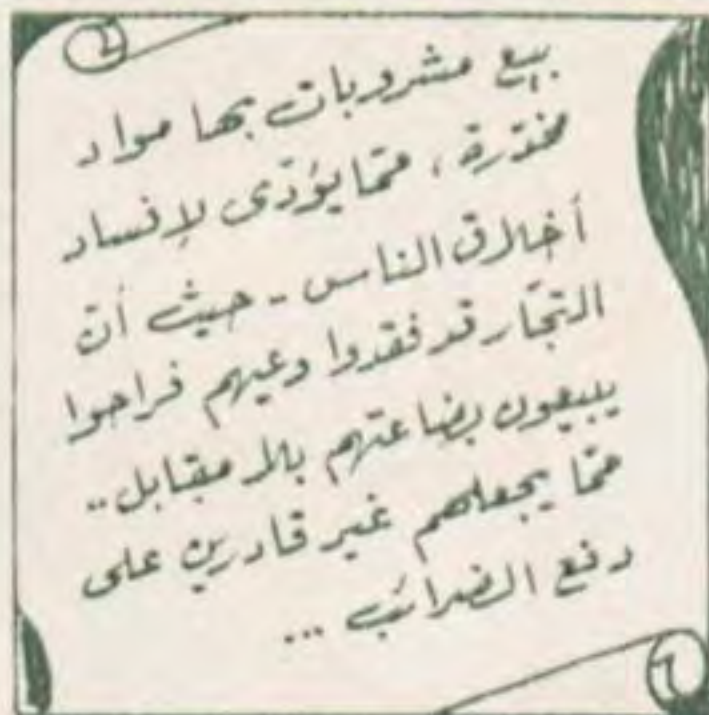 بيع مشروبات بها مواد
مخدّرة ، ممّا يؤدّى لإفساد
أخلاق الناس - حيث أن
التجّار قد فقدوا وعيهم فراحوا
يبيعون بضاعتهم بلا مقابل ..
ممّا يجعلهم غير قادرين على
دفع الضرائب ...